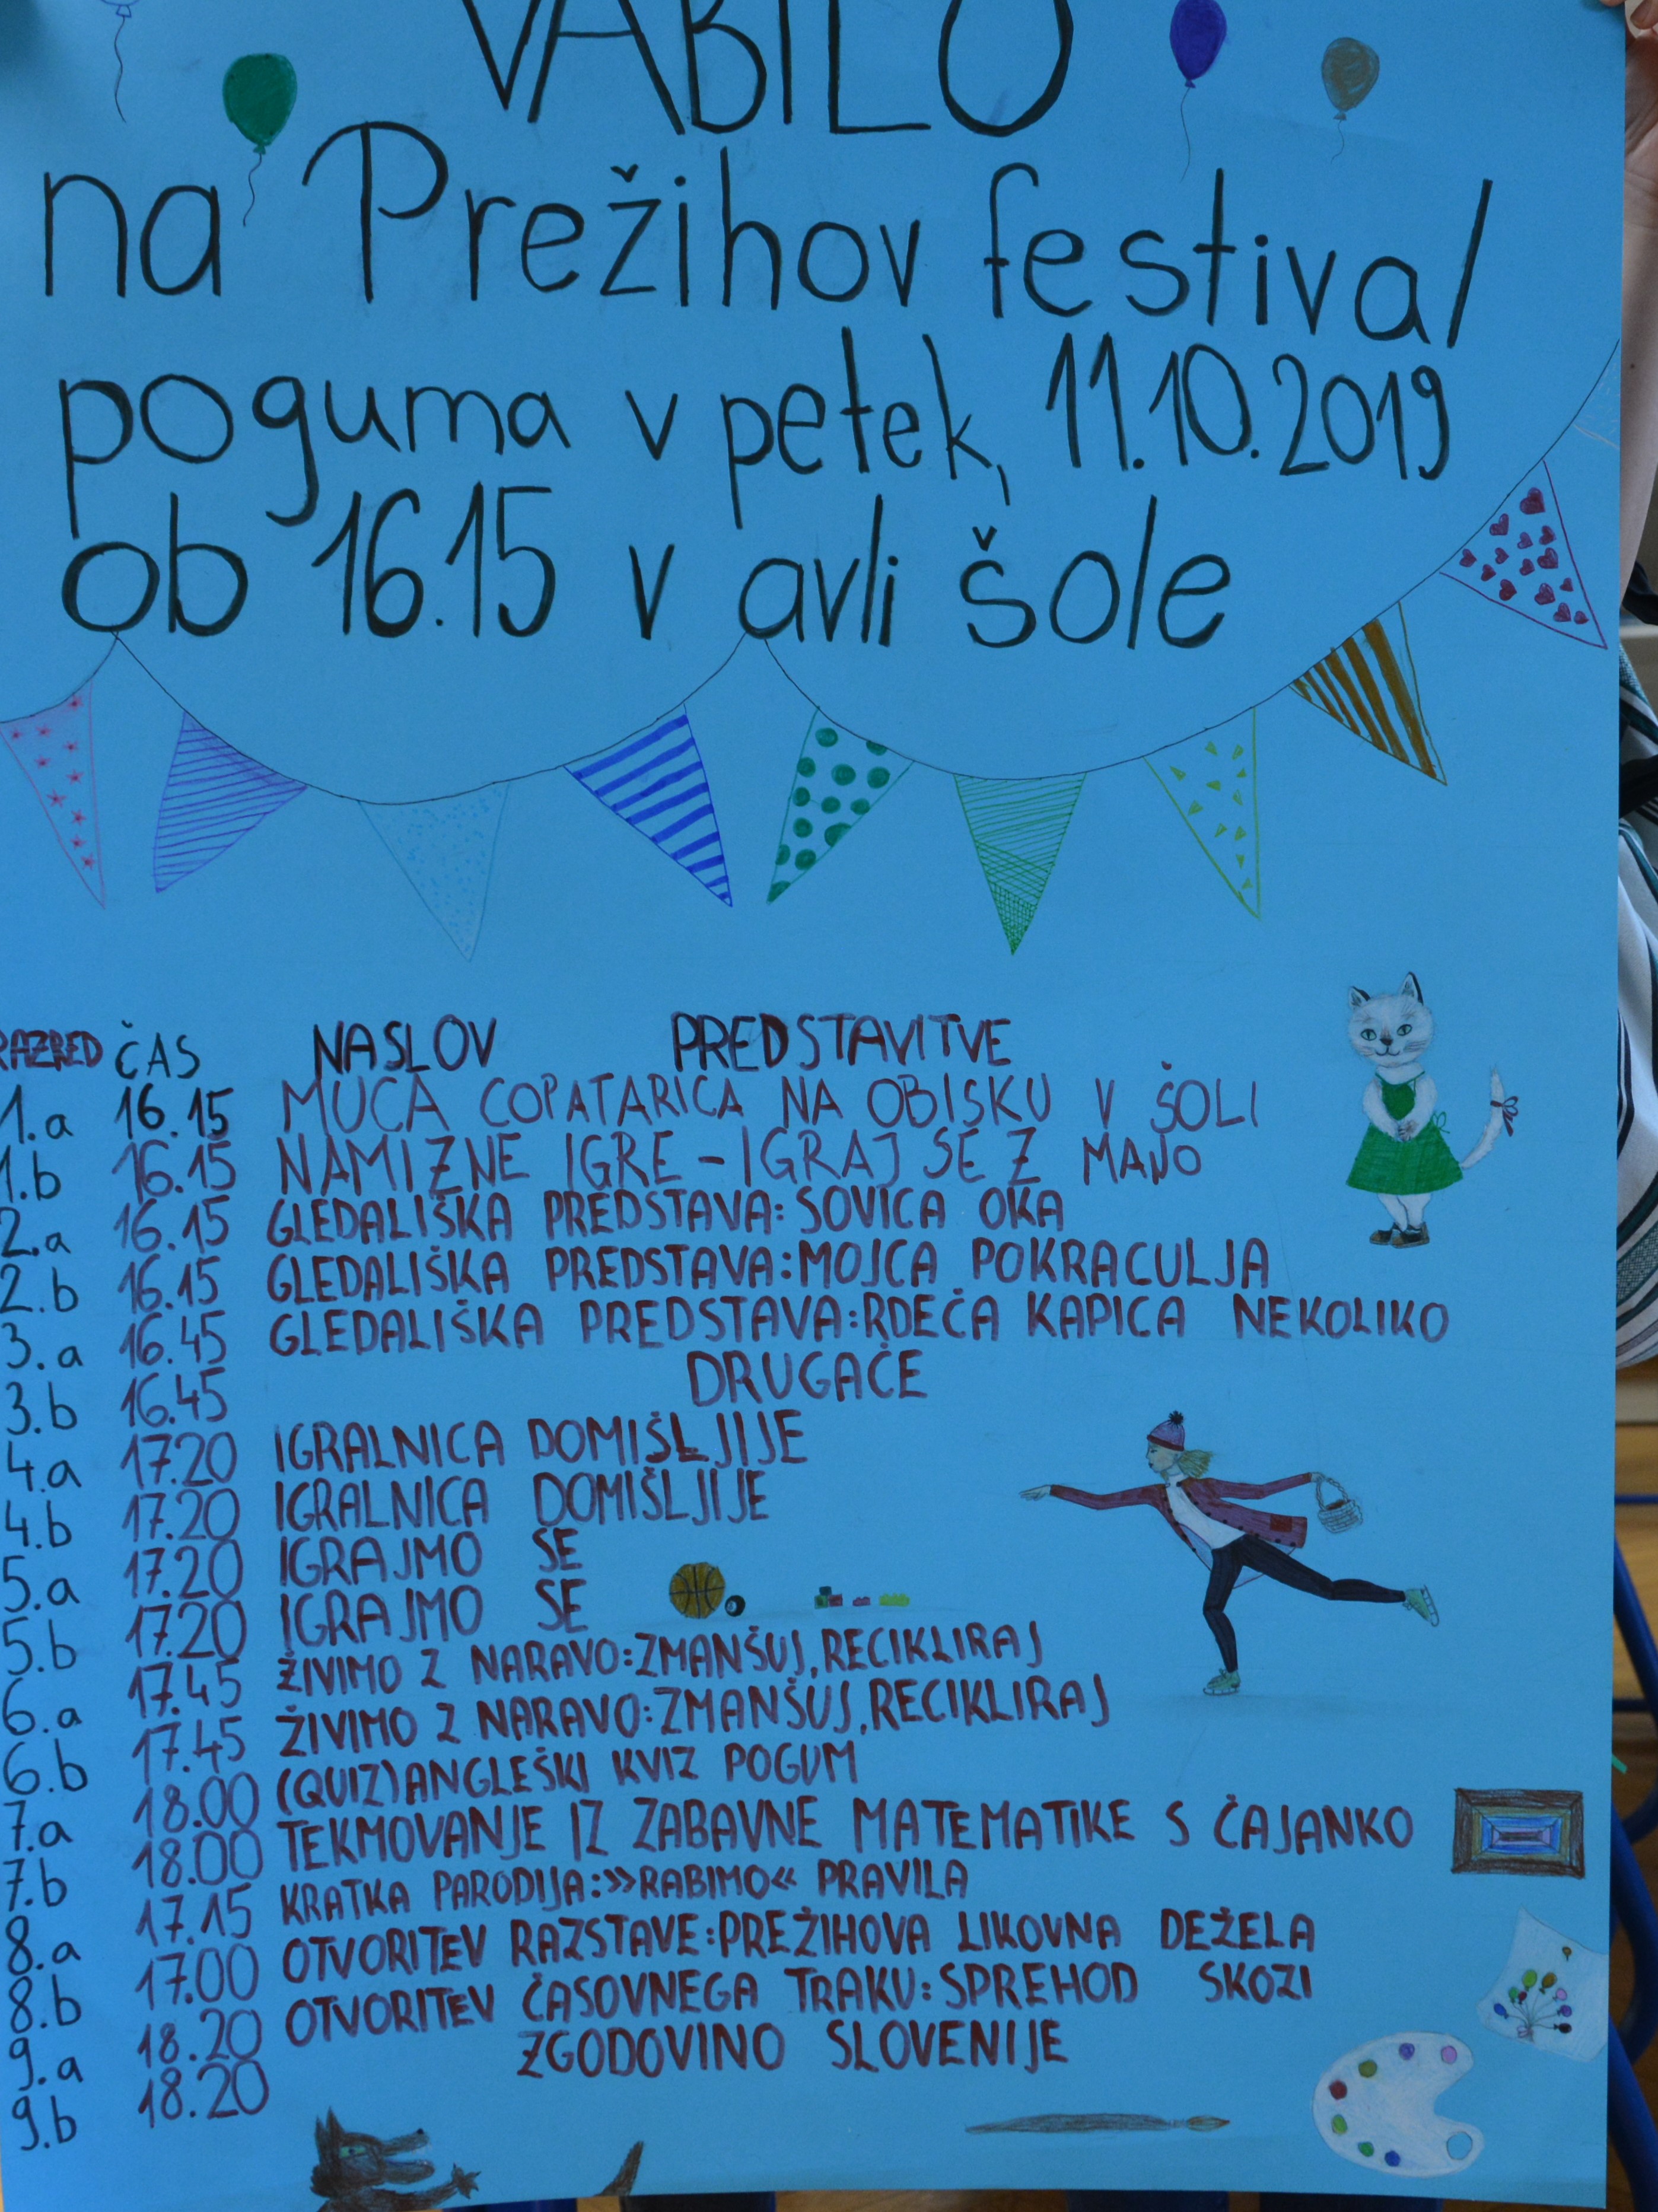 VABILO
na Prežihov festival
poguma v petek, 11.10.2019
ob 16.15 v avli šole
RAZRED ČAS NASLOV PREDSTAVITVE
1.a 16.15 MUCA COPATARICA NA OBISKU V ŠOLI
1.b 16.15 NAMIZNE IGRE - IGRAJ SE Z MANO
2.a 16.15 GLEDALIŠKA PREDSTAVA: SOVICA OKA
2.b 16.15 GLEDALIŠKA PREDSTAVA: MOJCA POKRACULJA
3.a 16.45 GLEDALIŠKA PREDSTAVA: RDEČA KAPICA NEKOLIKO
3.b 16.45 DRUGAČE
4.a 17.20 IGRALNICA DOMIŠLJIJE
4.b 17.20 IGRALNICA DOMIŠLJIJE
5.a 17.20 IGRAJMO SE
5.b 17.20 IGRAJMO SE
6.a 17.45 ŽIVIMO Z NARAVO: ZMANŠUJ, RECIKLIRAJ
6.b 17.45 ŽIVIMO Z NARAVO: ZMANŠUJ, RECIKLIRAJ
7.a 18.00 (QUIZ) ANGLEŠKI KVIZ POGUM
7.b 18.00 TEKMOVANJE IZ ZABAVNE MATEMATIKE S ČAJANKO
8.a 17.15 KRATKA PARODIJA: »RABIMO« PRAVILA
8.b 17.00 OTVORITEV RAZSTAVE: PREŽIHOVA LIKOVNA DEŽELA
9.a 18.20 OTVORITEV ČASOVNEGA TRAKU: SPREHOD SKOZI
9.b 18.20 ZGODOVINO SLOVENIJE